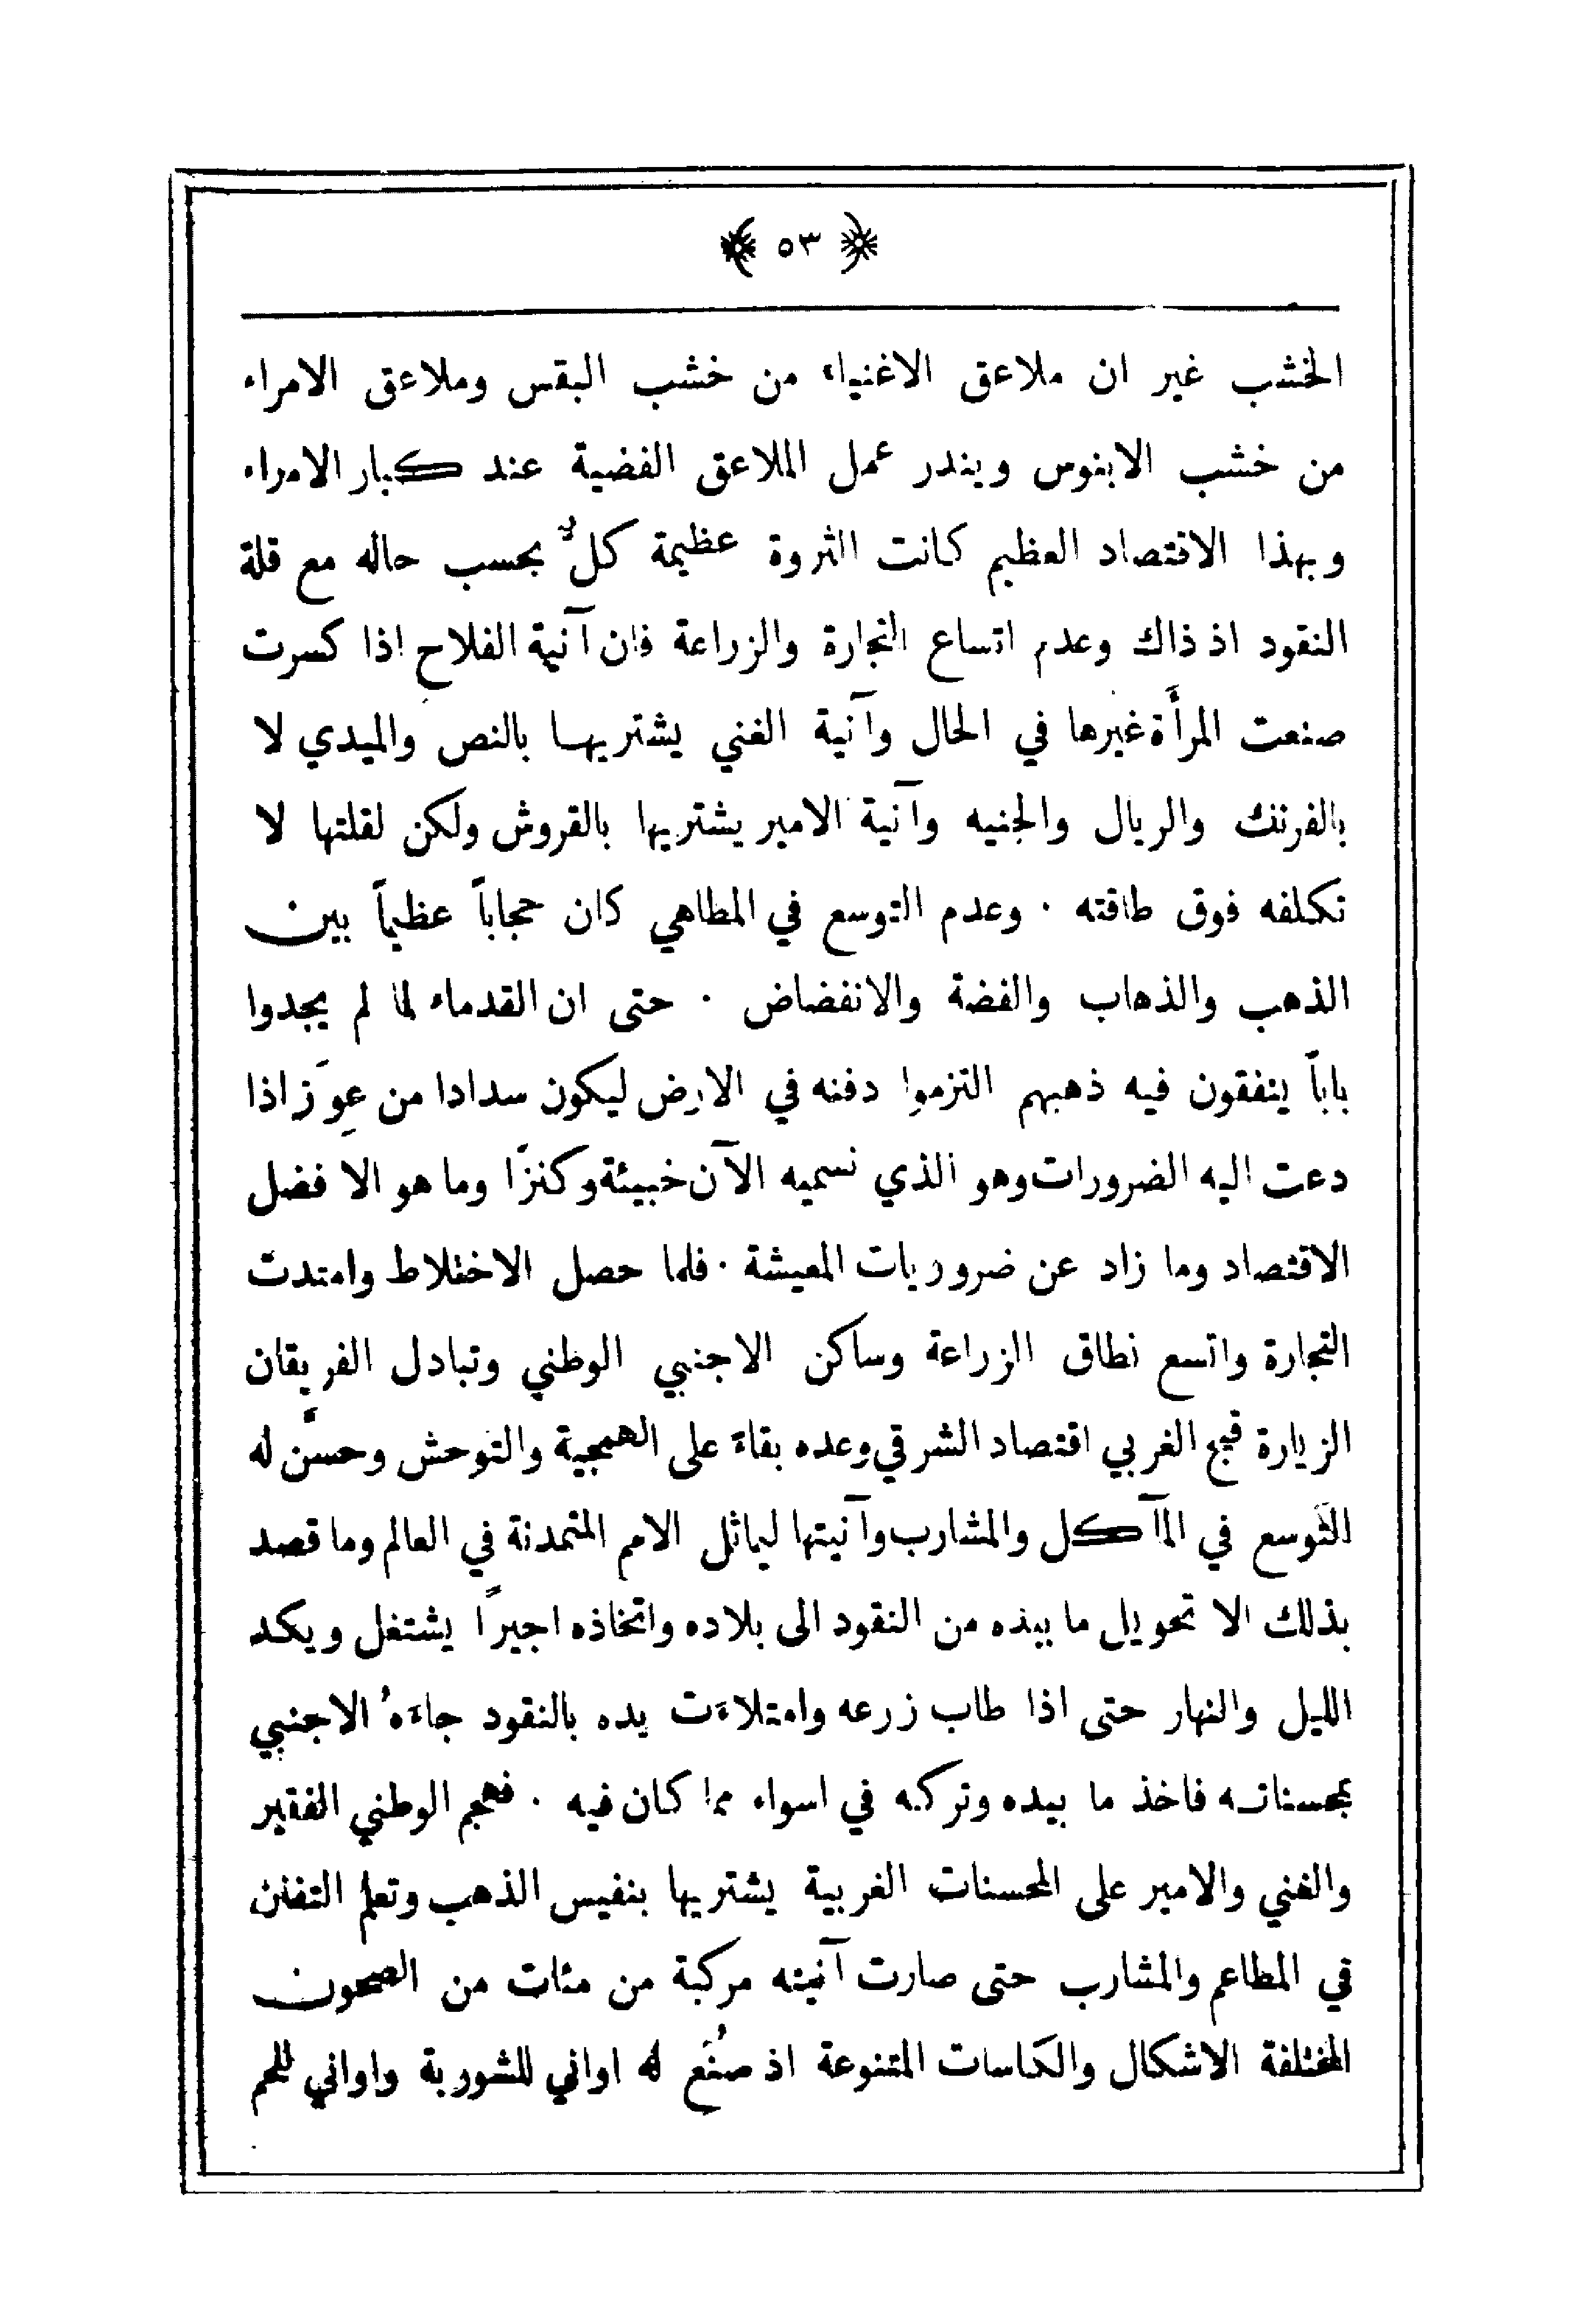 ﴿ ٥٣ ﴾
الخشب غير ان ملاعق الاغنياء من خشب البقس وملاعق الامراء
من خشب الابنوس ويندر عمل الملاعق الفضية عند كبار الامراء
وبهذا الاقتصاد العظيم كانت الثروة عظيمة كلٌّ بحسب حاله مع قلة
النقود اذ ذاك وعدم اتساع التجارة والزراعة فان آنية الفلاح اذا كسرت
صنعت المرأَة غيرها في الحال وآنية الغني يشتريهـا بالنص والميدي لا
بالفرنك والريال والجنيه وآنية الامير يشتريها بالقروش ولكن لقلتها لا
تكلفه فوق طاقته ٠ وعدم التوسع في المطاهي كان حجاباً عظيماً بين
الذهب والذهاب والفضة والانفضاض ٠ حتى ان القدماء لما لم يجدوا
باباً ينفقون فيه ذهبهم التزموا دفنه في الارض ليكون سدادا من عِوَز اذا
دعت اليه الضرورات وهو الذي نسميه الآن خبيئة وكنزًا وما هو الا فضل
الاقتصاد وما زاد عن ضروريات المعيشة ٠ فلما حصل الاختلاط وامتدت
التجارة واتسع نطاق الزراعة وساكن الاجنبي الوطني وتبادل الفريقان
الزيارة قبح الغربي اقتصاد الشرقي وعده بقاءً على الهمجية والتوحش وحسَّن له
التَّوسع في المآكل والمشارب وآنيتها ليماثل الامم المتمدنة في العالم وما قصد
بذلك الا تحويل ما بيده من النقود الى بلاده واتخاذه اجيرًا يشتغل ويكد
الليل والنهار حتى اذا طاب زرعه وامتلاءَت يده بالنقود جاءَهُ الاجنبي
بمحسناتـه فاخذ ما بيده وتركه في اسواء مما كان فيه ٠ فهجم الوطني الفقير
والغني والامير على المحسنات الغربية يشتريها بنفيس الذهب وتعلم التفنن
في المطاعم والمشارب حتى صارت آنيته مركبة من مئات من الصحون
المختلفة الاشكال والكاسات المتنوعة اذ صُنَع له اواني للشوربة واواني للحم